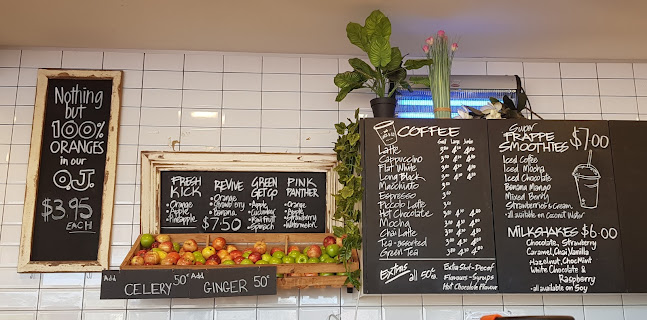 Nothing
but
100%
ORANGES
in our
O.J.
$3.95
EACH
FRESH
KICK
• Orange
• Apple
• Pineapple
REVIVE
• Orange
• Strawberry
• Banana
$7.50
GREEN
GETGO
• Apple
• Cucumber
• Kiwifruit
• Spinach
PINK
PANTHER
• Orange
• Apple
• Strawberry
• Watermelon
Add
CELERY 50¢
Add
GINGER 50¢
COFFEE
Latte
Cappuccino
Flat White
Long Black
Macchiato
Espresso
Piccolo Latte
Hot Chocolate
Mocha
Chai Latte
Tea-Assorted
Green Tea
Extras
all 50¢
Extra Shot-Decaf
Flavours-Syrups
Hot Chocolate Flavours
Super
FRAPPE $7.00
SMOOTHIES
Iced Coffee
Iced Mocha
Iced Chocolate
Banana Mango
Mixed Berry
Strawberries & Cream
- all available on Coconut Water
MILKSHAKES $6.00
Chocolate, Strawberry
Caramel, Chai, Vanilla
Hazelnut, Choc Mint
White Chocolate &
Raspberry
- all available on Soy